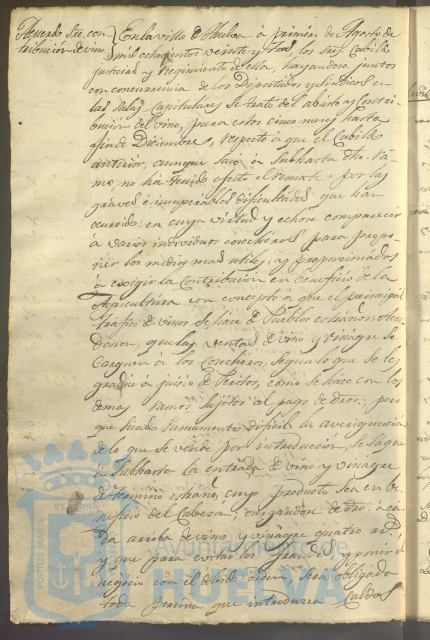 Acuerdo sre. con
tribución de vino.
En la villa de Huelva à primero de Agosto de
mil ochocientos veinte y tres, los Sres. Cabildo
Justicia y Regimiento de ella, hayandose juntos
con concurrencia de los Diputados y Sindicos en
las Salas Capitulares se trató del abasto y Contri-
bución del vino, para estos cinco meses hasta
fin de Diciembre, respecto à que el Cabildo
anterior, aunque sacó à subhasta dho. Ra-
mo, no ha tenido efecto el remate por las
graves é insuperables dificultades que han
ocurrido: en cuya virtud y echose comparecer
à varios individuos cosecheros para propo-
ner los medios mas utiles, y proporcionados
à exigir la Contribución en beneficio de la
Agricultura con concepto a que el principal
trafico de vinos se hace de Pueblos
que las ventas de vino y vinagre se
carguen à los Cosecheros, segun lo que se les
gradue à juicio de Peritos, como se hace con los
demas ramos sujetos al pago de dros.: pero
que siendo sumamente dificil la averiguación
de lo que se vende por introducción, se saque
à Subhasta la entrada de vino y vinagre
de termino estraño, cuyo producto sea en be-
neficio del Cabezon, cargandose de dro. à ca-
da arroba de vino y vinagre quatro rs.
y que para evitar los fraudes, y poner el
negocio con el devido orden, será obligada
toda persona que introduzca Caldos
PORTUS MARIS
Ayuntamiento de
HUELVA